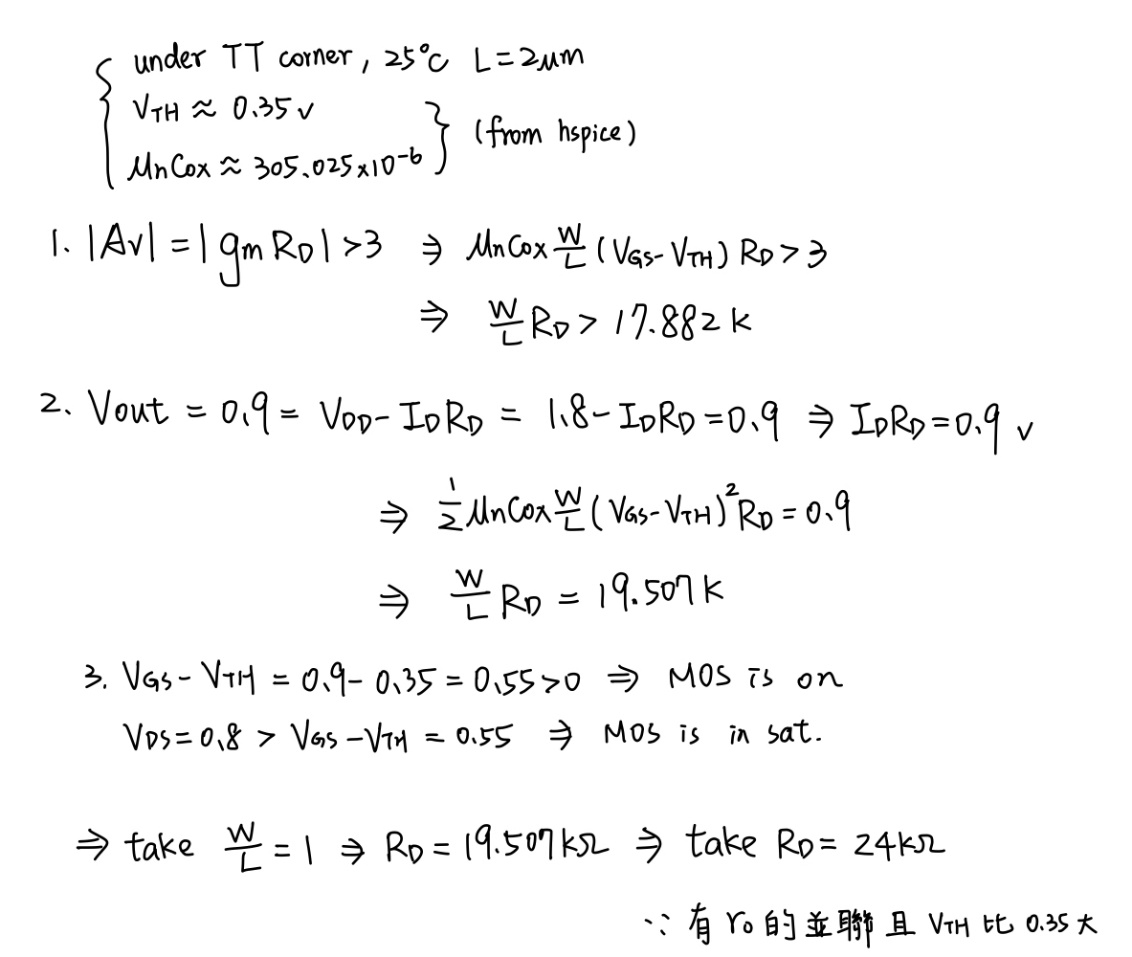 under TT corner, 25°C L=2μm
VTH ≈ 0.35 V
μnCox ≈ 305.025×10⁻⁶ } (from hspice)
1. |Av| = |gm RD| > 3 ⇒ μnCox W/L (VGS-VTH) RD > 3
⇒ W/L RD > 17.882 k
2. Vout = 0.9 = VDD - IDRD = 1.8 - IDRD = 0.9 ⇒ IDRD = 0.9 V
⇒ 1/2 μnCox W/L (VGS-VTH)² RD = 0.9
⇒ W/L RD = 19.507 k
3. VGS - VTH = 0.9 - 0.35 = 0.55 > 0 ⇒ MOS is on
VDS = 0.8 > VGS - VTH = 0.55 ⇒ MOS is in sat.
⇒ take W/L = 1 ⇒ RD = 19.507 kΩ ⇒ take RD = 24 kΩ
∵ 有 ro 的並聯且 VTH 比 0.35 大